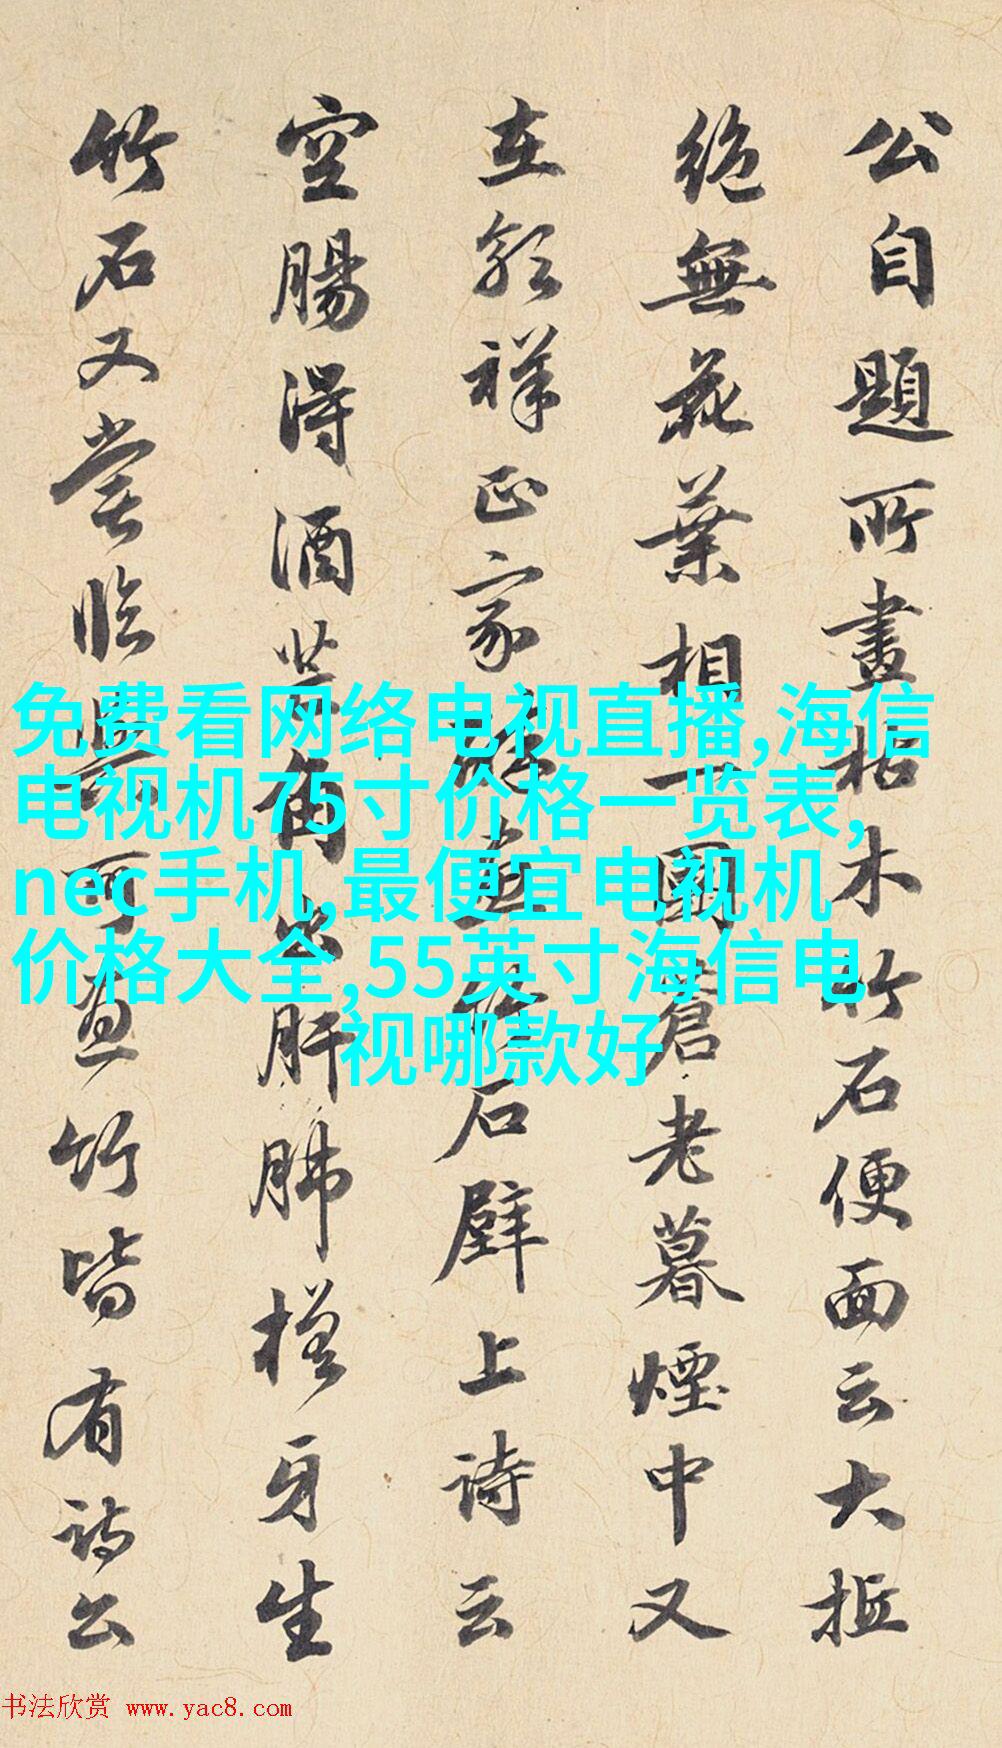 公自題所畫枯木竹石便面云大抵
絶無花葉相一團蒼老暮煙中又
在郭祥正家醉畫竹石壁上詩云
空腸得酒芒角出肝肺槎牙生
竹石又嘗臨與可畫竹皆有詩公
免费看网络电视直播,海信
电视机75寸价格一览表,
nec手机,最便宜电视机
价格大全,55英寸海信电
视哪款好
书法欣赏 www.yac8.com